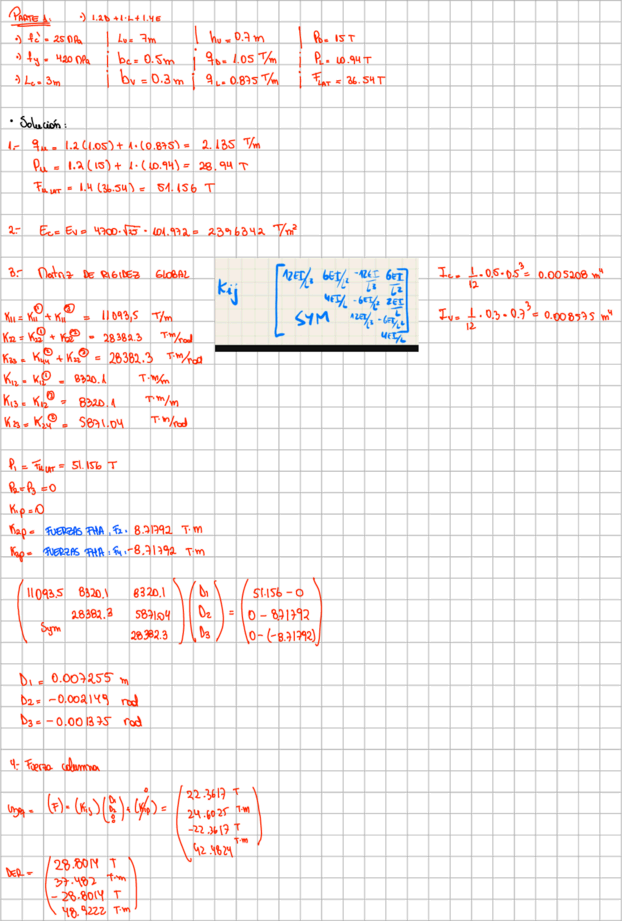 PARTE 1. •) 1.2D + 1·L + 1.4E
•) f'c = 25 MPa | Lv = 7m | hv = 0.7 m | PD = 15 T
•) fy = 420 MPa | bc = 0.5m | qD = 1.05 T/m | PL = 10.94 T
•) Lc = 3m | bv = 0.3m | qL = 0.875 T/m | FLAT = 36.54T
• Solución:
1.- qu = 1.2 (1.05) + 1·(0.875) = 2.135 T/m
Pu = 1.2 (15) + 1·(10.94) = 28.94 T
Fu LAT = 1.4 (36.54) = 51.156 T
2.- Ec = Ev = 4700·√25 · 101.972 = 2396342 T/m²
3.- Matriz DE RIGIDEZ GLOBAL
Kij [12EI/L³ 6EI/L² -12EI/L³ 6EI/L²
4EI/L -6EI/L² 2EI/L
SYM 12EI/L³ -6EI/L²
4EI/L]
Ic = 1/12 · 0.5 · 0.5³ = 0.005208 m⁴
Iv = 1/12 · 0.3 · 0.7³ = 0.008575 m⁴
K11 = K11① + K11③ = 11093,5 T/m
K22 = K22① + K22② = 28382.3 T·m/rad
K33 = K44② + K22③ = 28382.3 T·m/rad
K12 = K12① = 8320.1 T·m/m
K13 = K12③ = 8320.1 T·m/m
K23 = K24② = 5871.04 T·m/rad
P1 = Fu LAT = 51.156 T
P2 = P3 = 0
K1p = 0
K2p = FUERZAS FHA: F2 = 8.71792 T·m
K3p = FUERZAS FHA: F4 = -8.71792 T·m
(11093,5 8320,1 8320.1) (D1) = (51.156 - 0)
(28382.3 5871.04) (D2) (0 - 8.71792)
(Sym 28382.3) (D3) (0 - (-8.71792))
D1 = 0.007255 m
D2 = -0.002149 rad
D3 = -0.001375 rad
4.- Fuerza columna
IZQ = (F) = (Kij) (D1 D2 0 0) + (Kip) 0 = (22.3617 T
24.6025 T·m
-22.3617 T
42.4824 T·m)
DER = (28.8014 T
37.482 T·m
-28.8014 T
48.9222 T·m)